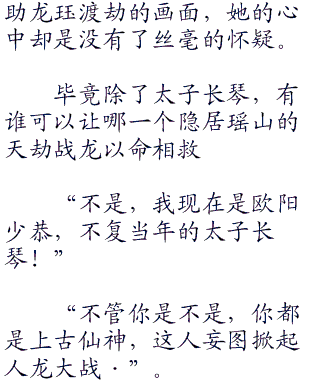 助龙珏渡劫的画面，她的心
中却是没有了丝毫的怀疑。
毕竟除了太子长琴，有
谁可以让哪一个隐居瑶山的
天劫战龙以命相救
“不是，我现在是欧阳
少恭，不复当年的太子长
琴！”
“不管你是不是，你都
是上古仙神，这人妄图掀起
人龙大战·”。